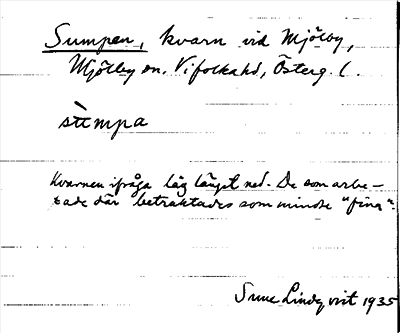 Sumpen, kvarn vid Mjölby,
Mjölby sn. Vifolkahd, Österg. l.
stùmpa
Kvarnen ifråga låg längst ned. De som arbe-
tade där betraktades som mindre "fina".
Sune Lindqvist 1935